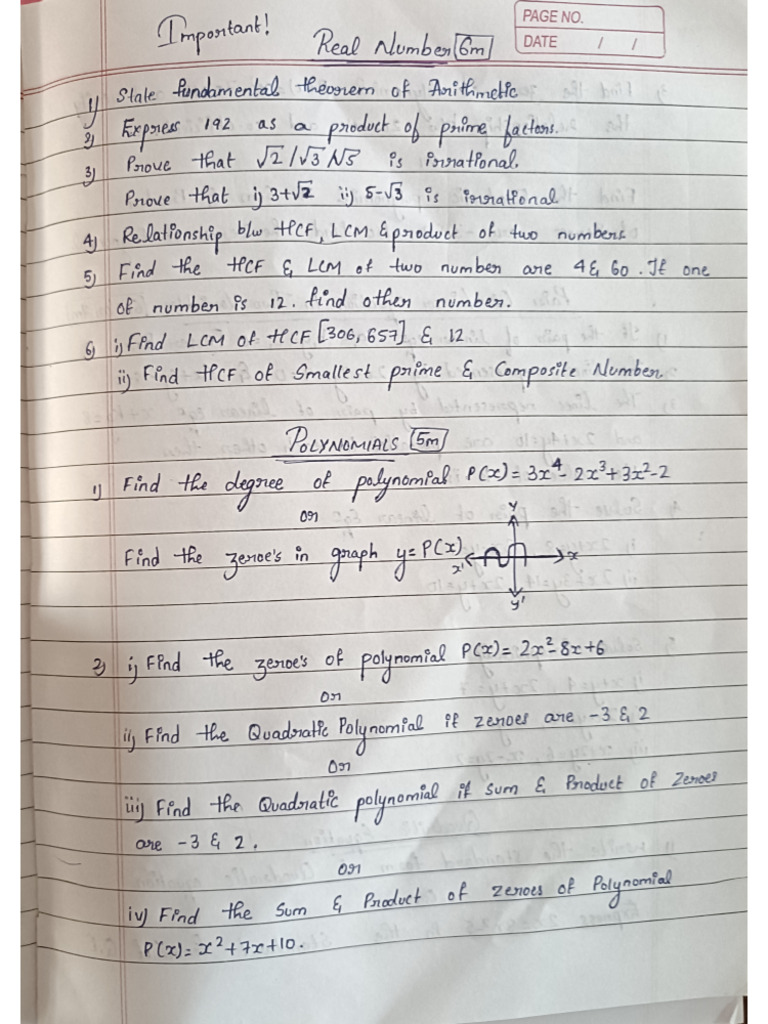 Important!
Real Number 6m
PAGE NO.
DATE / /
1) State fundamental theorem of Arithmetic
2) Express 192 as a product of prime factors.
3) Prove that √2/√3/√5 is irrational.
Prove that i) 3+√2 ii) 5-√3, is irrational
4) Relationship b/w HCF, LCM & product of two numbers
5) Find the HCF & LCM of two number are 4 & 60. If one
of number is 12. find other number.
6) i) Find LCM of HCF [306, 657] & 12
ii) Find HCF of Smallest prime & Composite Number
POLYNOMIALS 5m
1) Find the degree of polynomial P(x) = 3x⁴ - 2x³ + 3x² - 2
or
Find the zeroe's in graph y = P(x)
y
x' x
y'
2) i) Find the zeroe's of polynomial P(x) = 2x² - 8x + 6
or
ii) Find the Quadratic Polynomial if zeroes are -3 & 2
Or
iii) Find the Quadratic polynomial if Sum & Product of Zeroes
are -3 & 2.
or
iv) Find the Sum & Product of zeroes of Polynomial
P(x) = x² + 7x + 10.